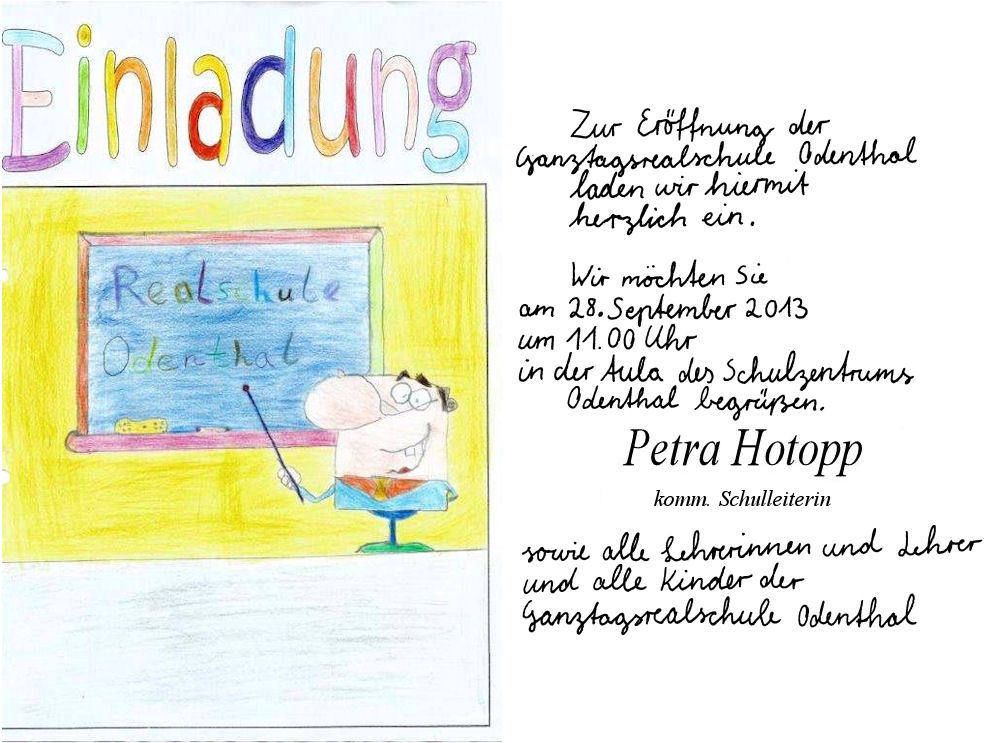 Einladung
Realschule
Odenthal
Zur Eröffnung der
Ganztagsrealschule Odenthal
laden wir hiermit
herzlich ein.
Wir möchten Sie
am 28. September 2013
um 11.00 Uhr
in der Aula des Schulzentrums
Odenthal begrüßen.
Petra Hotopp
komm. Schulleiterin
sowie alle Lehrerinnen und Lehrer
und alle Kinder der
Ganztagsrealschule Odenthal